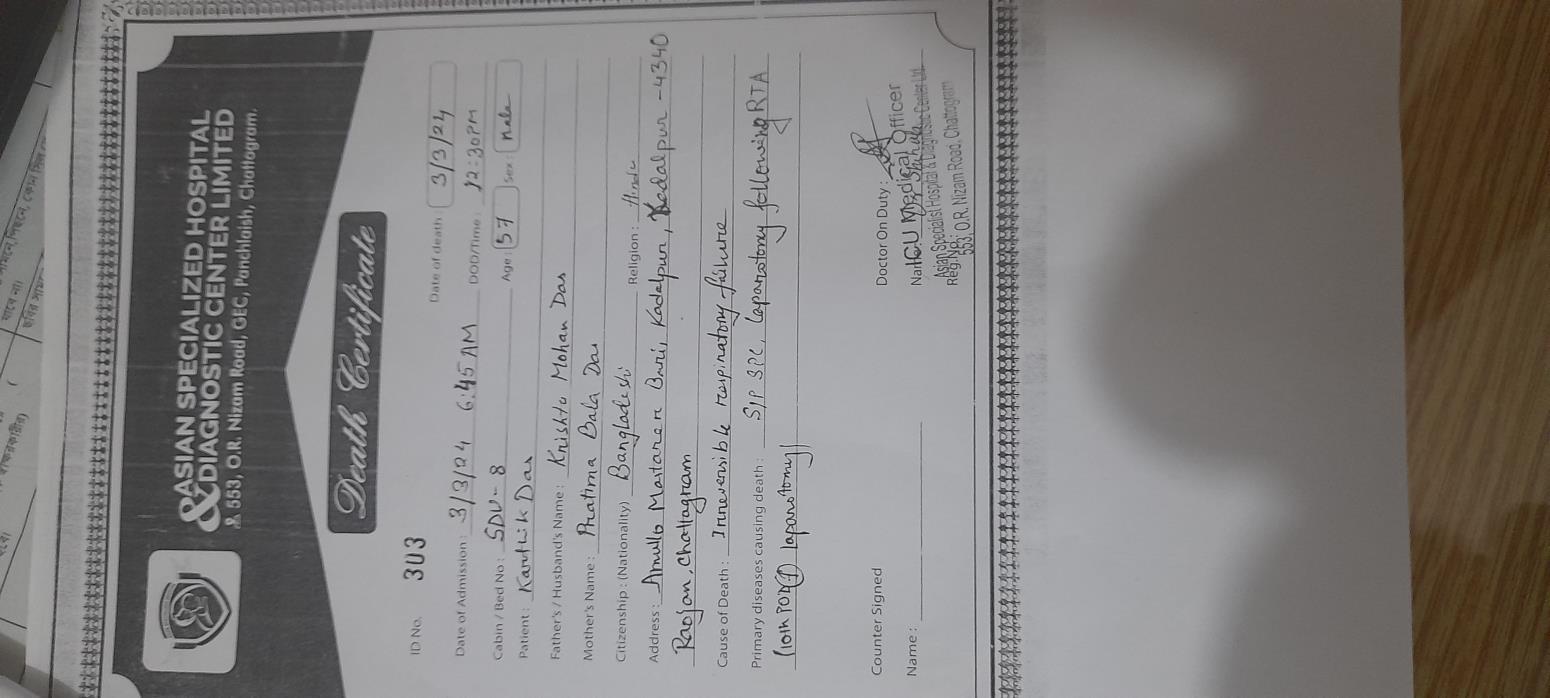 ASIAN SPECIALIZED HOSPITAL
& DIAGNOSTIC CENTER LIMITED
553, O.R. Nizam Road, GEC, Panchlaish, Chattogram.
Death Certificate
ID No. 303
Date of death: 3/3/24
Date of Admission: 3/3/24 6:45 AM DOD/Time: 12:30PM
Cabin / Bed No: SDU-8 Age: 57 Sex: Male
Patient: Karttik Das
Father's / Husband's Name: Krishto Mohan Das
Mother's Name: Pratima Bala Das
Citizenship: (Nationality) Bangladeshi Religion: Hindu
Address: Amullo Mastarer Bari, Kadalpur, Kadalpur -4340
Raojan, Chattagram
Cause of Death: Irreversible respiratory failure
Primary diseases causing death: S/P SPC, laparatomy following RTA
(10th POD laparotomy)
Counter Signed
Name:
Doctor On Duty:
ICU Medical Officer
Asian Specialist Hospital & Diagnostic Center Ltd.
553, O.R. Nizam Road, Chattogram